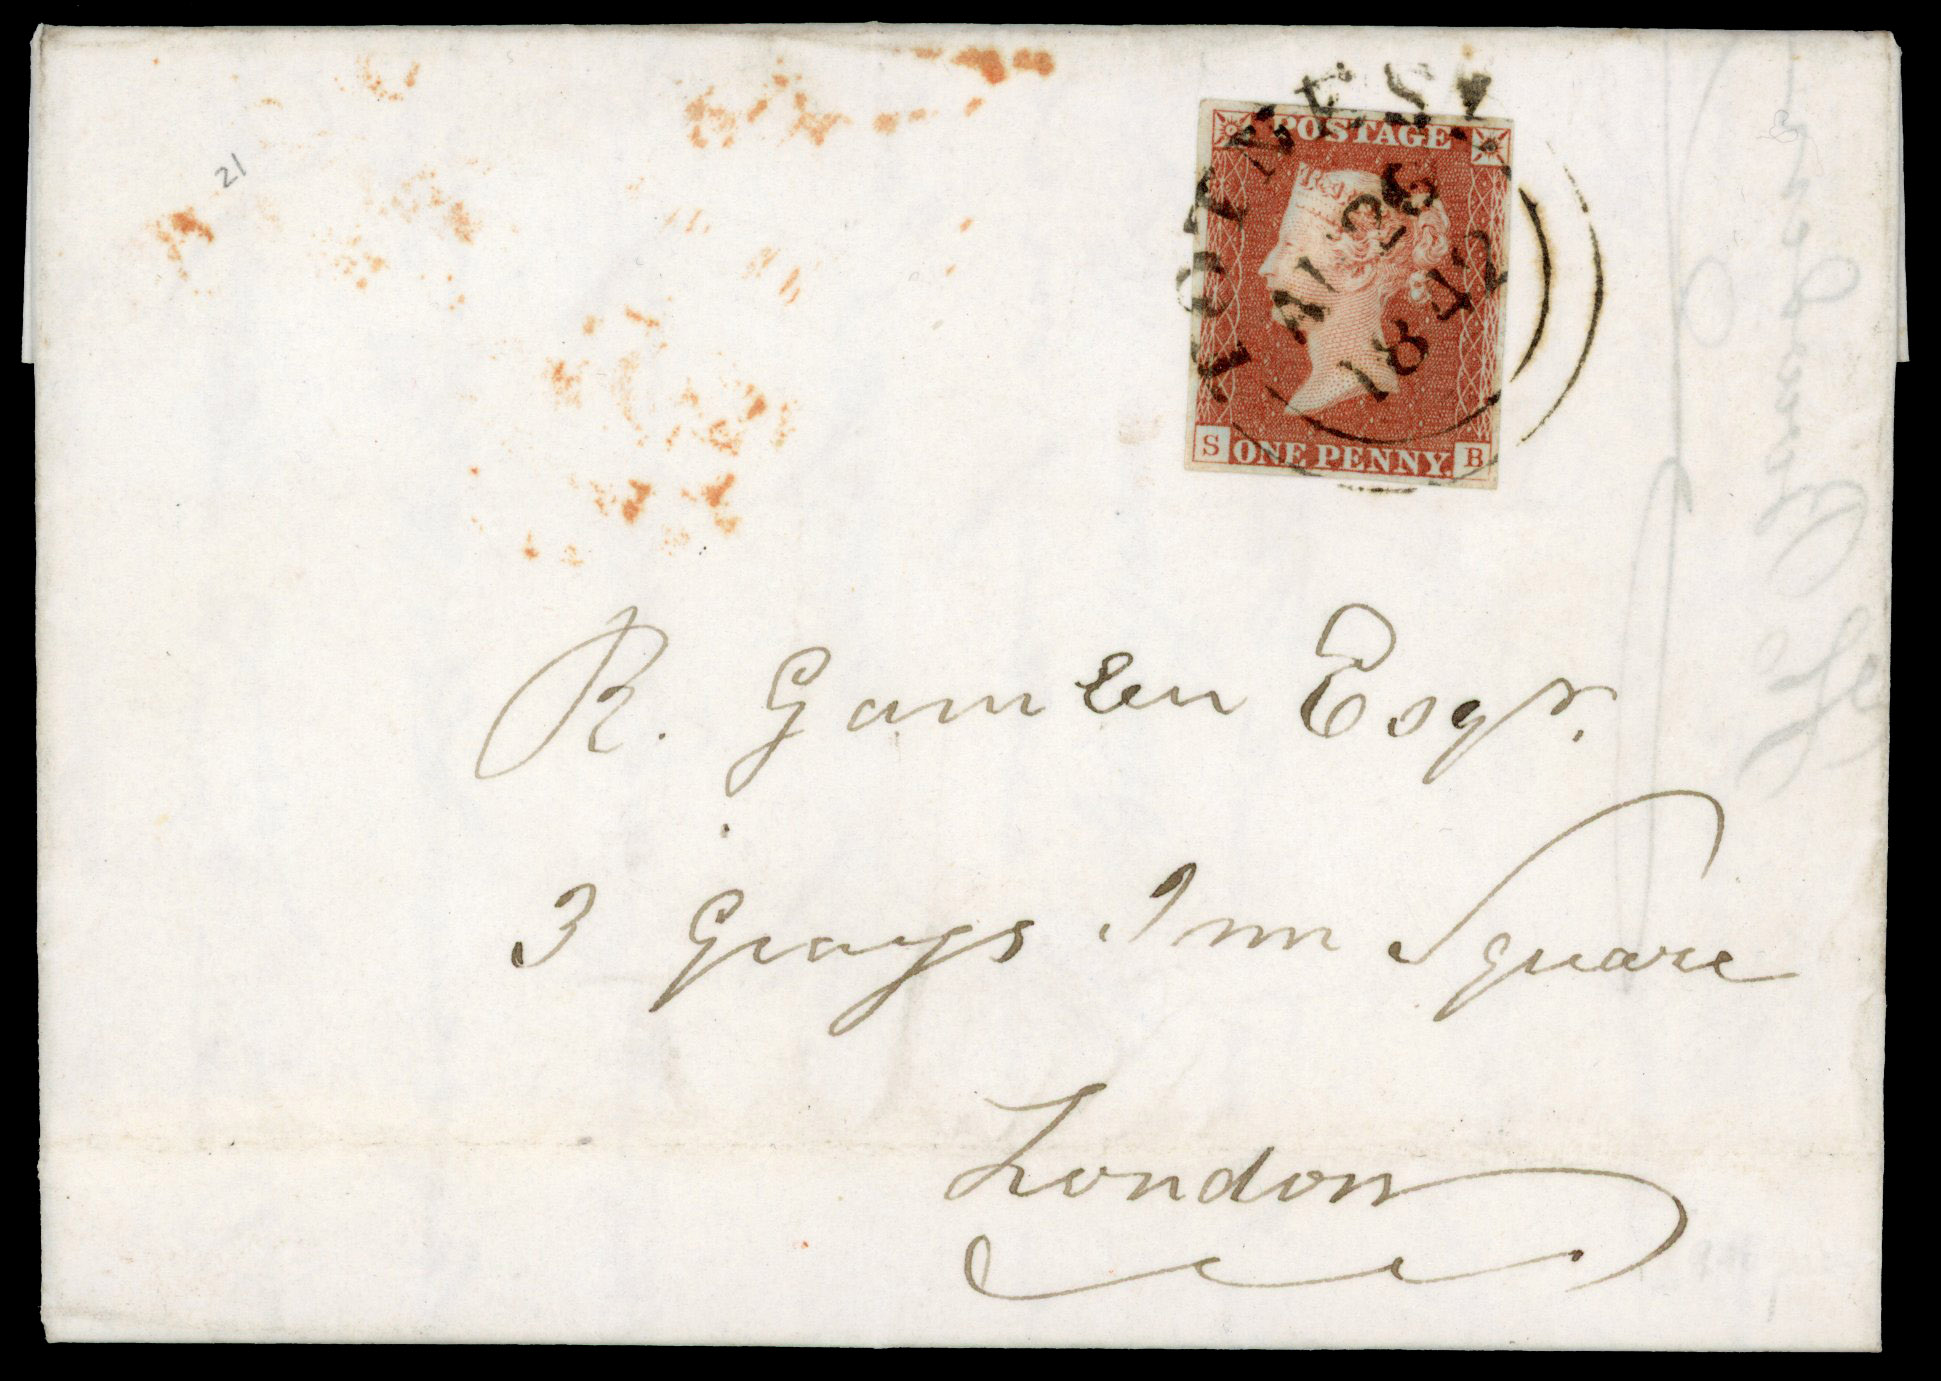 21
TOTNES
AU 26
1842
POSTAGE
S ONE PENNY. B
R. Gamlen Esqr.
3 Grays Inn Square
London